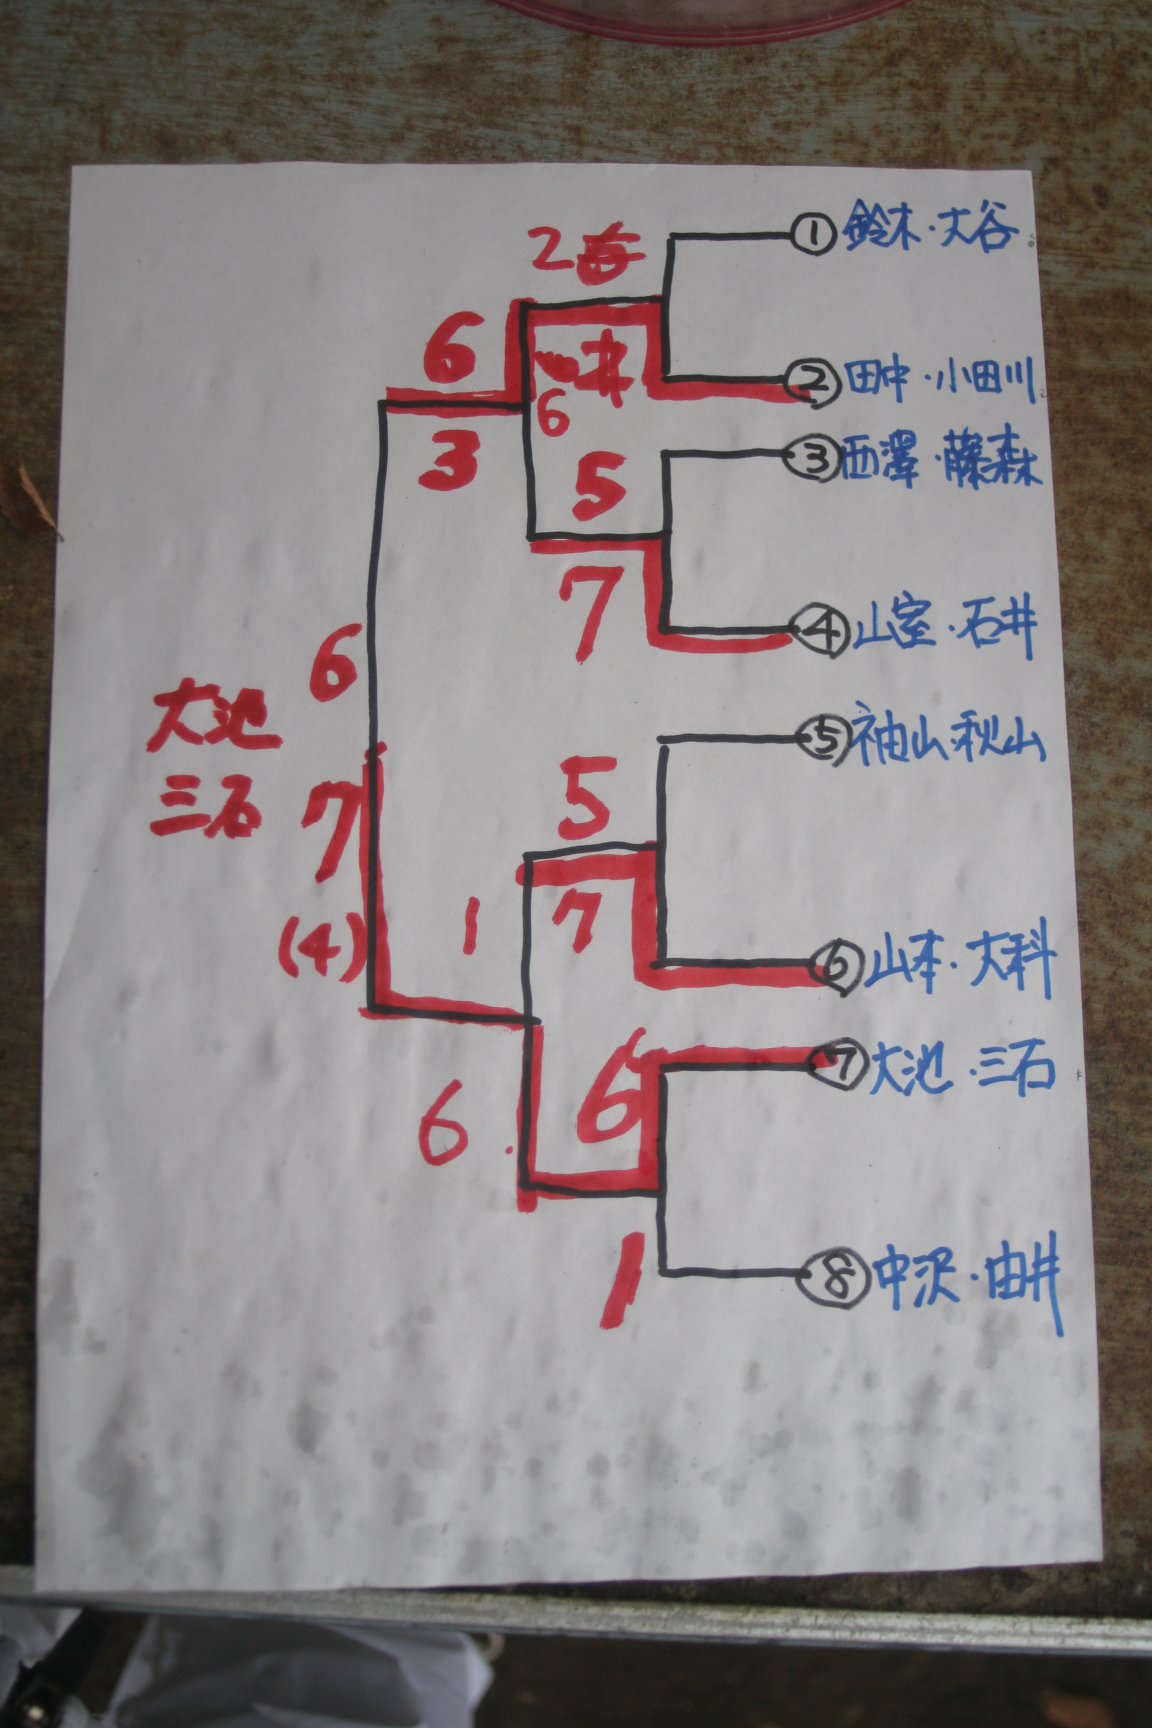 2
① 鈴木・大谷
6
② 田中・小田川
6
3
③ 西澤・藤森
5
7
④ 山室・石井
6
大池
三石
7
(4)
⑤ 袖山・秋山
5
7
1
⑥ 山本・大科
⑦ 大池・三石
6
6
1
⑧ 中沢・由井